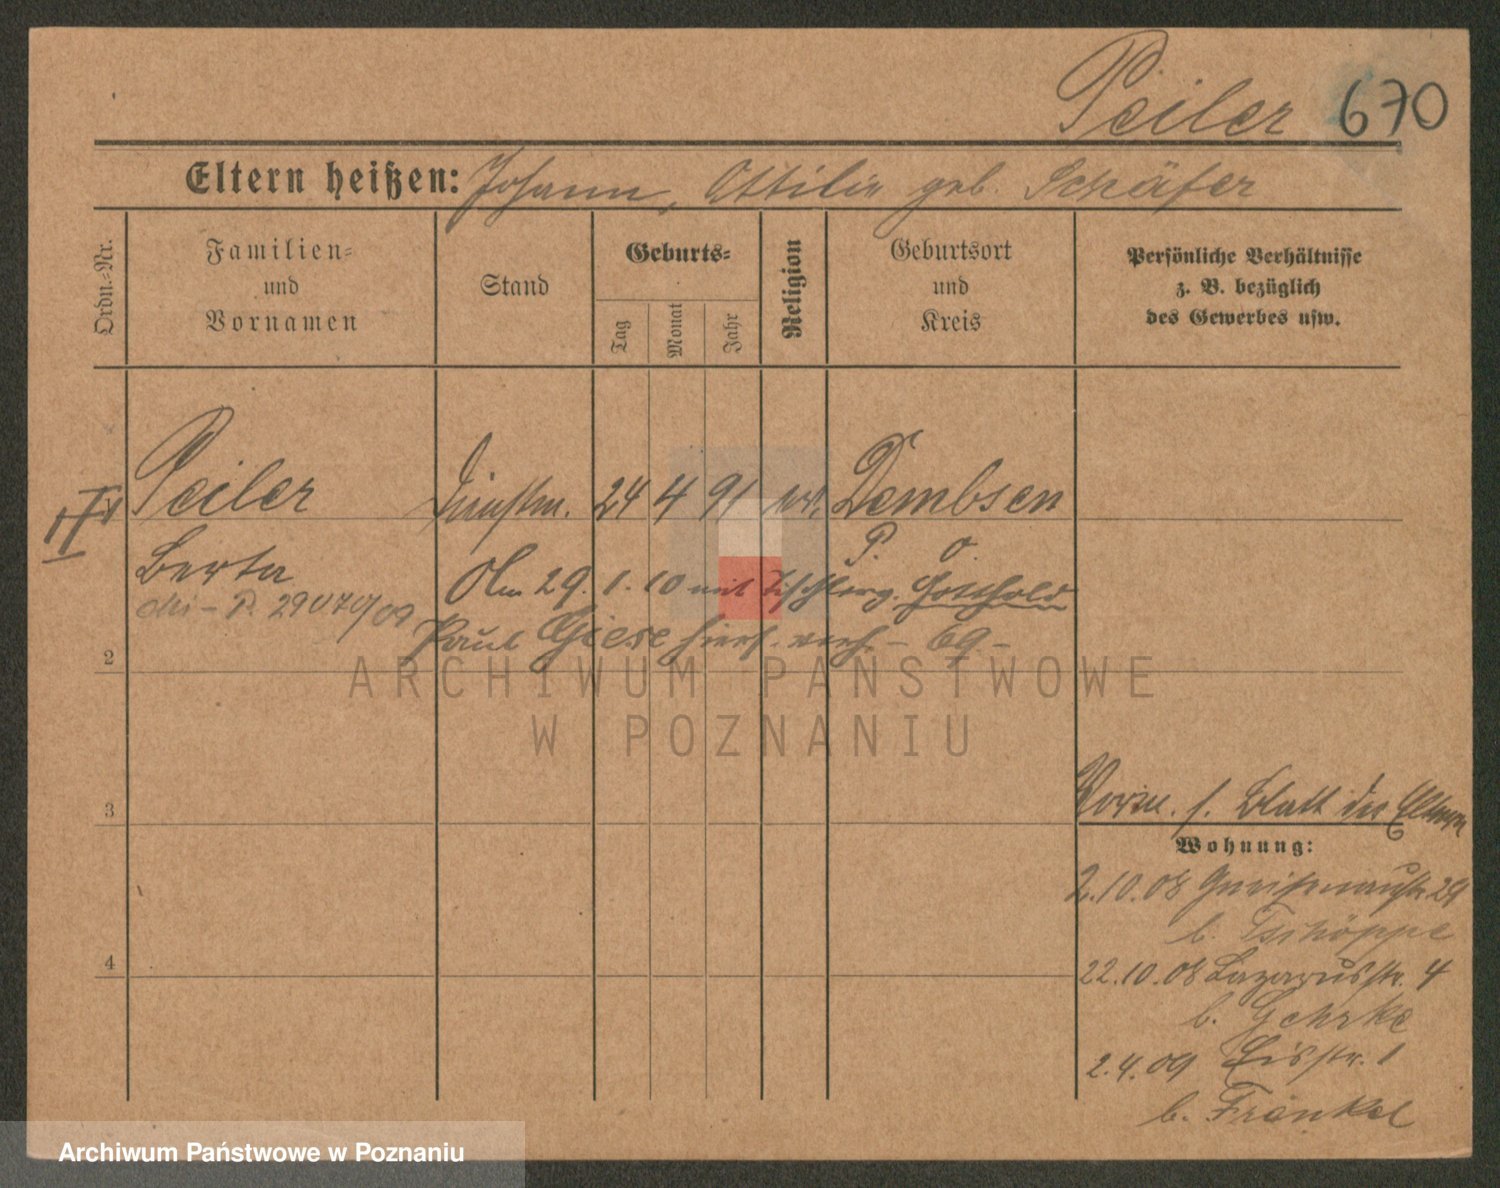 Peiler 670
Eltern heißen: Johann, Ottilie geb. Schäfer
Ordn.-Nr.
Familien-
und
Vornamen
Stand
Geburts-
Tag
Monat
Jahr
Religion
Geburtsort
und
Kreis
Persönliche Verhältnisse
z. B. bezüglich
des Gewerbes usw.
Peiler Dienstm. 24 4 91 Dembsen
P. O.
Berta
Am 29. 1. 10 mit Tischlerg. Gotthold
P. 29
Paul Giese hier verh. - 69 -
2
ARCHIWUM PAŃSTWOWE
W POZNANIU
3
Vorm. s. Blatt der Eltern
Wohnung:
2.10.08 Gneisenaustr. 29
b. Tschöppe
4
22.10.08 Lazarusstr. 4
b. Gehrke
2.4.09 Eisstr. 1
b. Fränkel
Archiwum Państwowe w Poznaniu